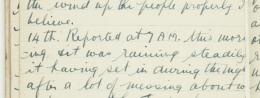 the wind up the people properly I
believe.
14th. Reported at 7 A.M. this mor-
ing it was raining steadily
it having set in during the nig
after a lot of messing about w